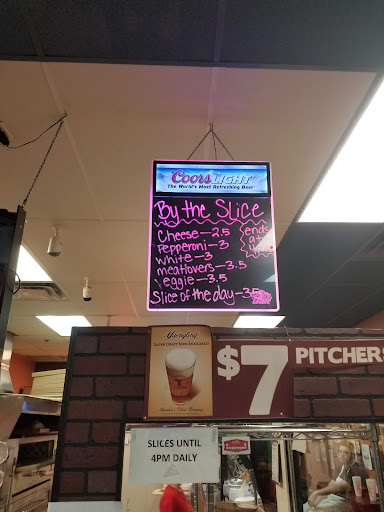 Coors LIGHT
The World's Most Refreshing Beer
By the Slice
Cheese-2.5
Pepperoni-3
White-3
meatlovers-3.5
Veggie-3.5
Slice of the day-3.5
Ends
at
Yuengling
$7 PITCHERS
SLICES UNTIL
4PM DAILY